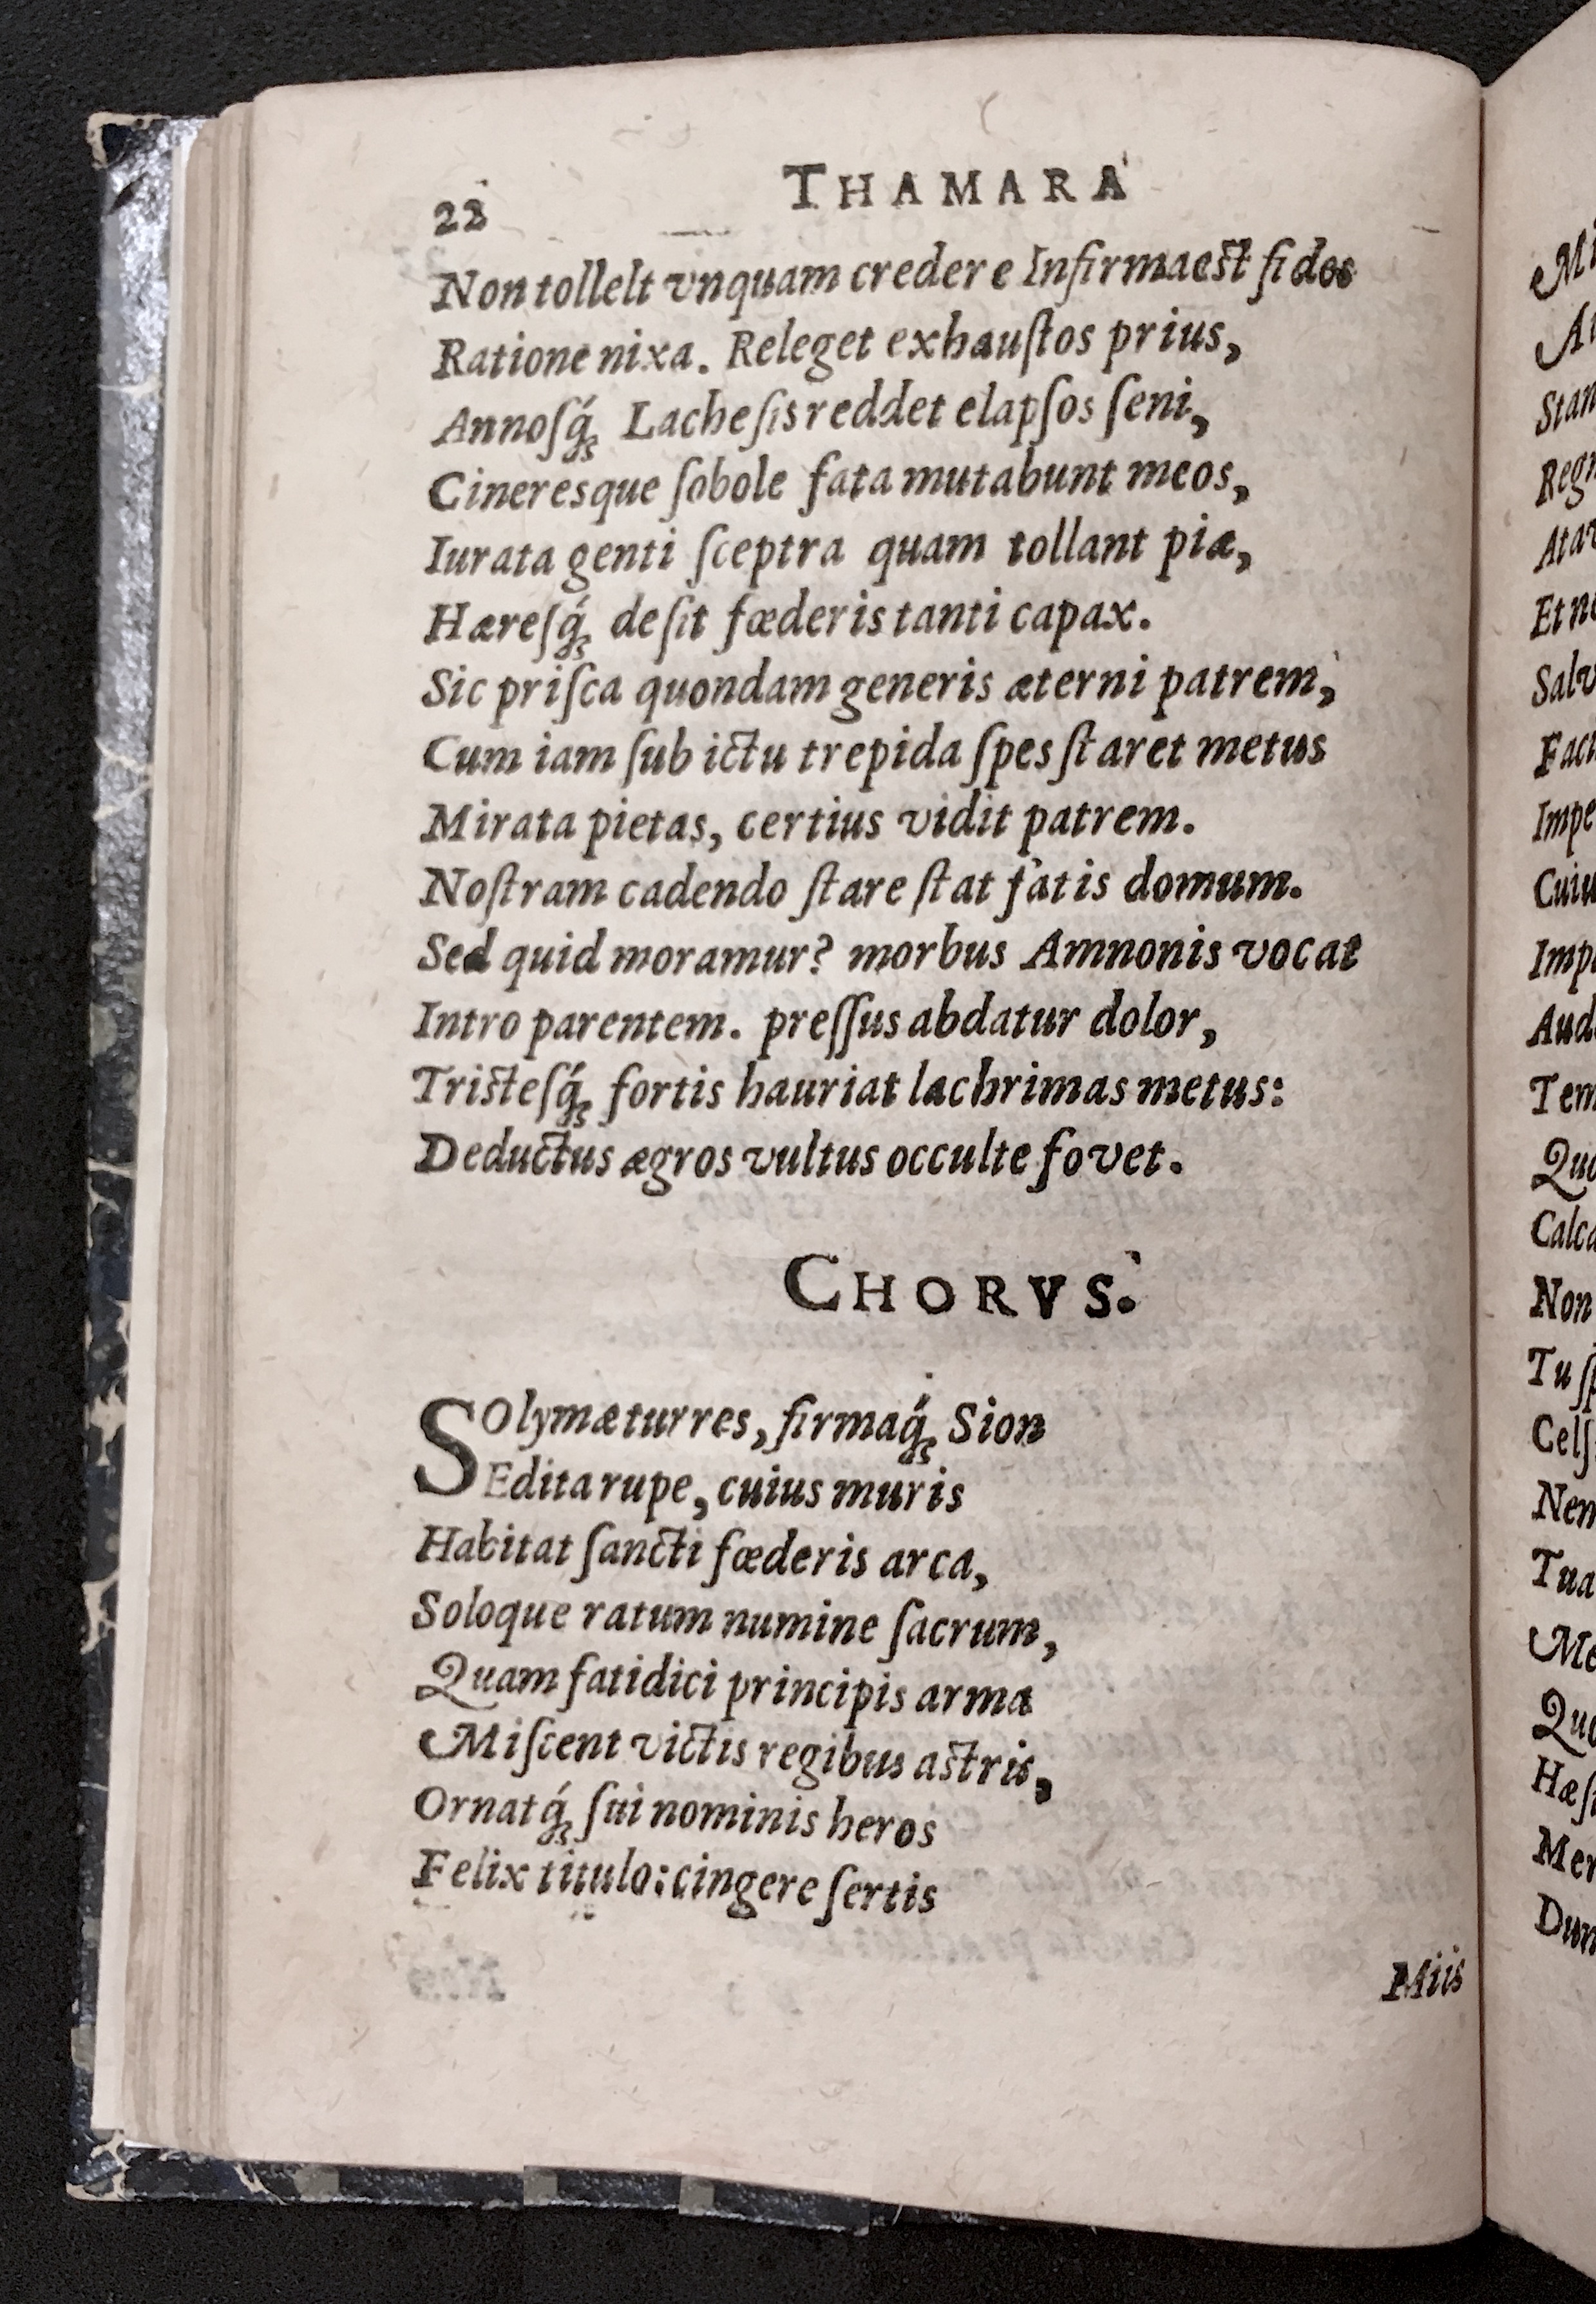 22 THAMARA
Non tollelt vnquam credere Infirma est fides
Ratione nixa. Releget exhauſtos prius,
Annoſq́ꝫ Lacheſis reddet elapſos ſeni,
Cineresque ſobole fata mutabunt meos,
Iurata genti ſceptra quam tollant piæ,
Hæreſq́ꝫ deſit fœderis tanti capax.
Sic priſca quondam generis æterni patrem,
Cum iam ſub ictu trepida ſpes ſtaret metus
Mirata pietas, certius vidit patrem.
Noſtram cadendo ſtare ſtat fatis domum.
Sed quid moramur? morbus Amnonis vocat
Intro parentem. preſſus abdatur dolor,
Tristeſq́ꝫ fortis hauriat lachrimas metus:
Deductus ægros vultus occulte fovet.
CHORVS.
SOlymæ turres, firmaq́ꝫ Sion
Edita rupe, cuius muris
Habitat ſancti fœderis arca,
Soloque ratum numine ſacrum,
Quam fatidici principis arma
Miſcent victis regibus astris,
Ornatq́ꝫ ſui nominis heros
Felix titulo: cingere ſertis
Miis